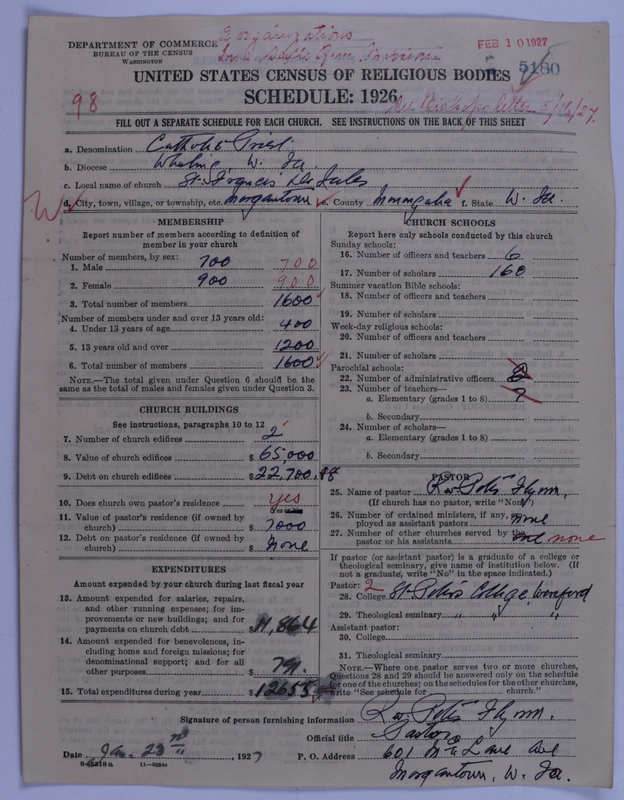 DEPARTMENT OF COMMERCE
BUREAU OF THE CENSUS
WASHINGTON
Organizations
FEB 10 1927
5180
UNITED STATES CENSUS OF RELIGIOUS BODIES
SCHEDULE: 1926
98
See Bishops letter 5/16/27.
FILL OUT A SEPARATE SCHEDULE FOR EACH CHURCH. SEE INSTRUCTIONS ON THE BACK OF THIS SHEET
a. Denomination Catholic Priest.
b. Diocese Wheeling, W. Va.
c. Local name of church St. Francis De Sales
d. City, town, village, or township, etc. Morgantown e. County Monongalia f. State W. Va.
MEMBERSHIP
Report number of members according to definition of
member in your church
Number of members, by sex:
1. Male 700 700
2. Female 900 900
3. Total number of members 1600
Number of members under and over 13 years old:
4. Under 13 years of age 400
5. 13 years old and over 1200
6. Total number of members 1600
NOTE.—The total given under Question 6 should be the
same as the total of males and females given under Question 3.
CHURCH BUILDINGS
See instructions, paragraphs 10 to 12
7. Number of church edifices 2
8. Value of church edifices $ 65,000
9. Debt on church edifices $ 22,700.48
10. Does church own pastor's residence yes
11. Value of pastor's residence (if owned by
church) $ 7000
12. Debt on pastor's residence (if owned by
church) $ None
EXPENDITURES
Amount expended by your church during last fiscal year
13. Amount expended for salaries, repairs,
and other running expenses; for im-
provements or new buildings; and for
payments on church debt $ 11,864
14. Amount expended for benevolences, in-
cluding home and foreign missions; for
denominational support; and for all
other purposes $ 791.
15. Total expenditures during year $ 12655
CHURCH SCHOOLS
Report here only schools conducted by this church
Sunday schools:
16. Number of officers and teachers 6
17. Number of scholars 160
Summer vacation Bible schools:
18. Number of officers and teachers
19. Number of scholars
Week-day religious schools:
20. Number of officers and teachers
21. Number of scholars
Parochial schools:
22. Number of administrative officers
23. Number of teachers—
a. Elementary (grades 1 to 8)
b. Secondary
24. Number of scholars—
a. Elementary (grades 1 to 8)
b. Secondary
PASTOR
25. Name of pastor Rev. Peter Flynn,
(If church has no pastor, write "None")
26. Number of ordained ministers, if any, em-
ployed as assistant pastors none
27. Number of other churches served by the
pastor or his assistants none
If pastor (or assistant pastor) is a graduate of a college or
theological seminary, give name of institution below. (If
not a graduate, write "No" in the space indicated.)
Pastor: 2
28. College St. Peter's College, Wexford
29. Theological seminary " " "
Assistant pastor:
30. College
31. Theological seminary
NOTE.—Where one pastor serves two or more churches,
Questions 28 and 29 should be answered only on the schedule
for one of the churches; on the schedules for the other churches,
write "See schedule for church."
Signature of person furnishing information Rev. Peter Flynn.
Official title Pastor
Date Jan. 23rd, 1927 P. O. Address 601 McLane Ave
Morgantown, W. Va.
11—9684a